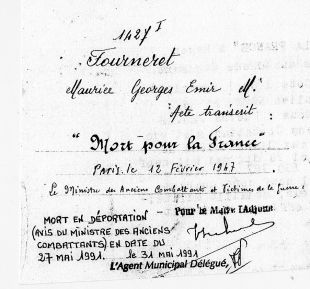 1427 I
Fourneret
Maurice Georges Emir M.
Acte transcrit :
"Mort pour la France"
PARIS. le 12 Février 1947
Le Ministre des Anciens Combattants et Victimes de la guerre
Pour le Maire l'Adjoint
MORT EN DÉPORTATION
(AVIS DU MINISTRE DES ANCIENS
COMBATTANTS) EN DATE DU
27 MAI 1991. le 31 MAI 1991
L'Agent Municipal Délégué,